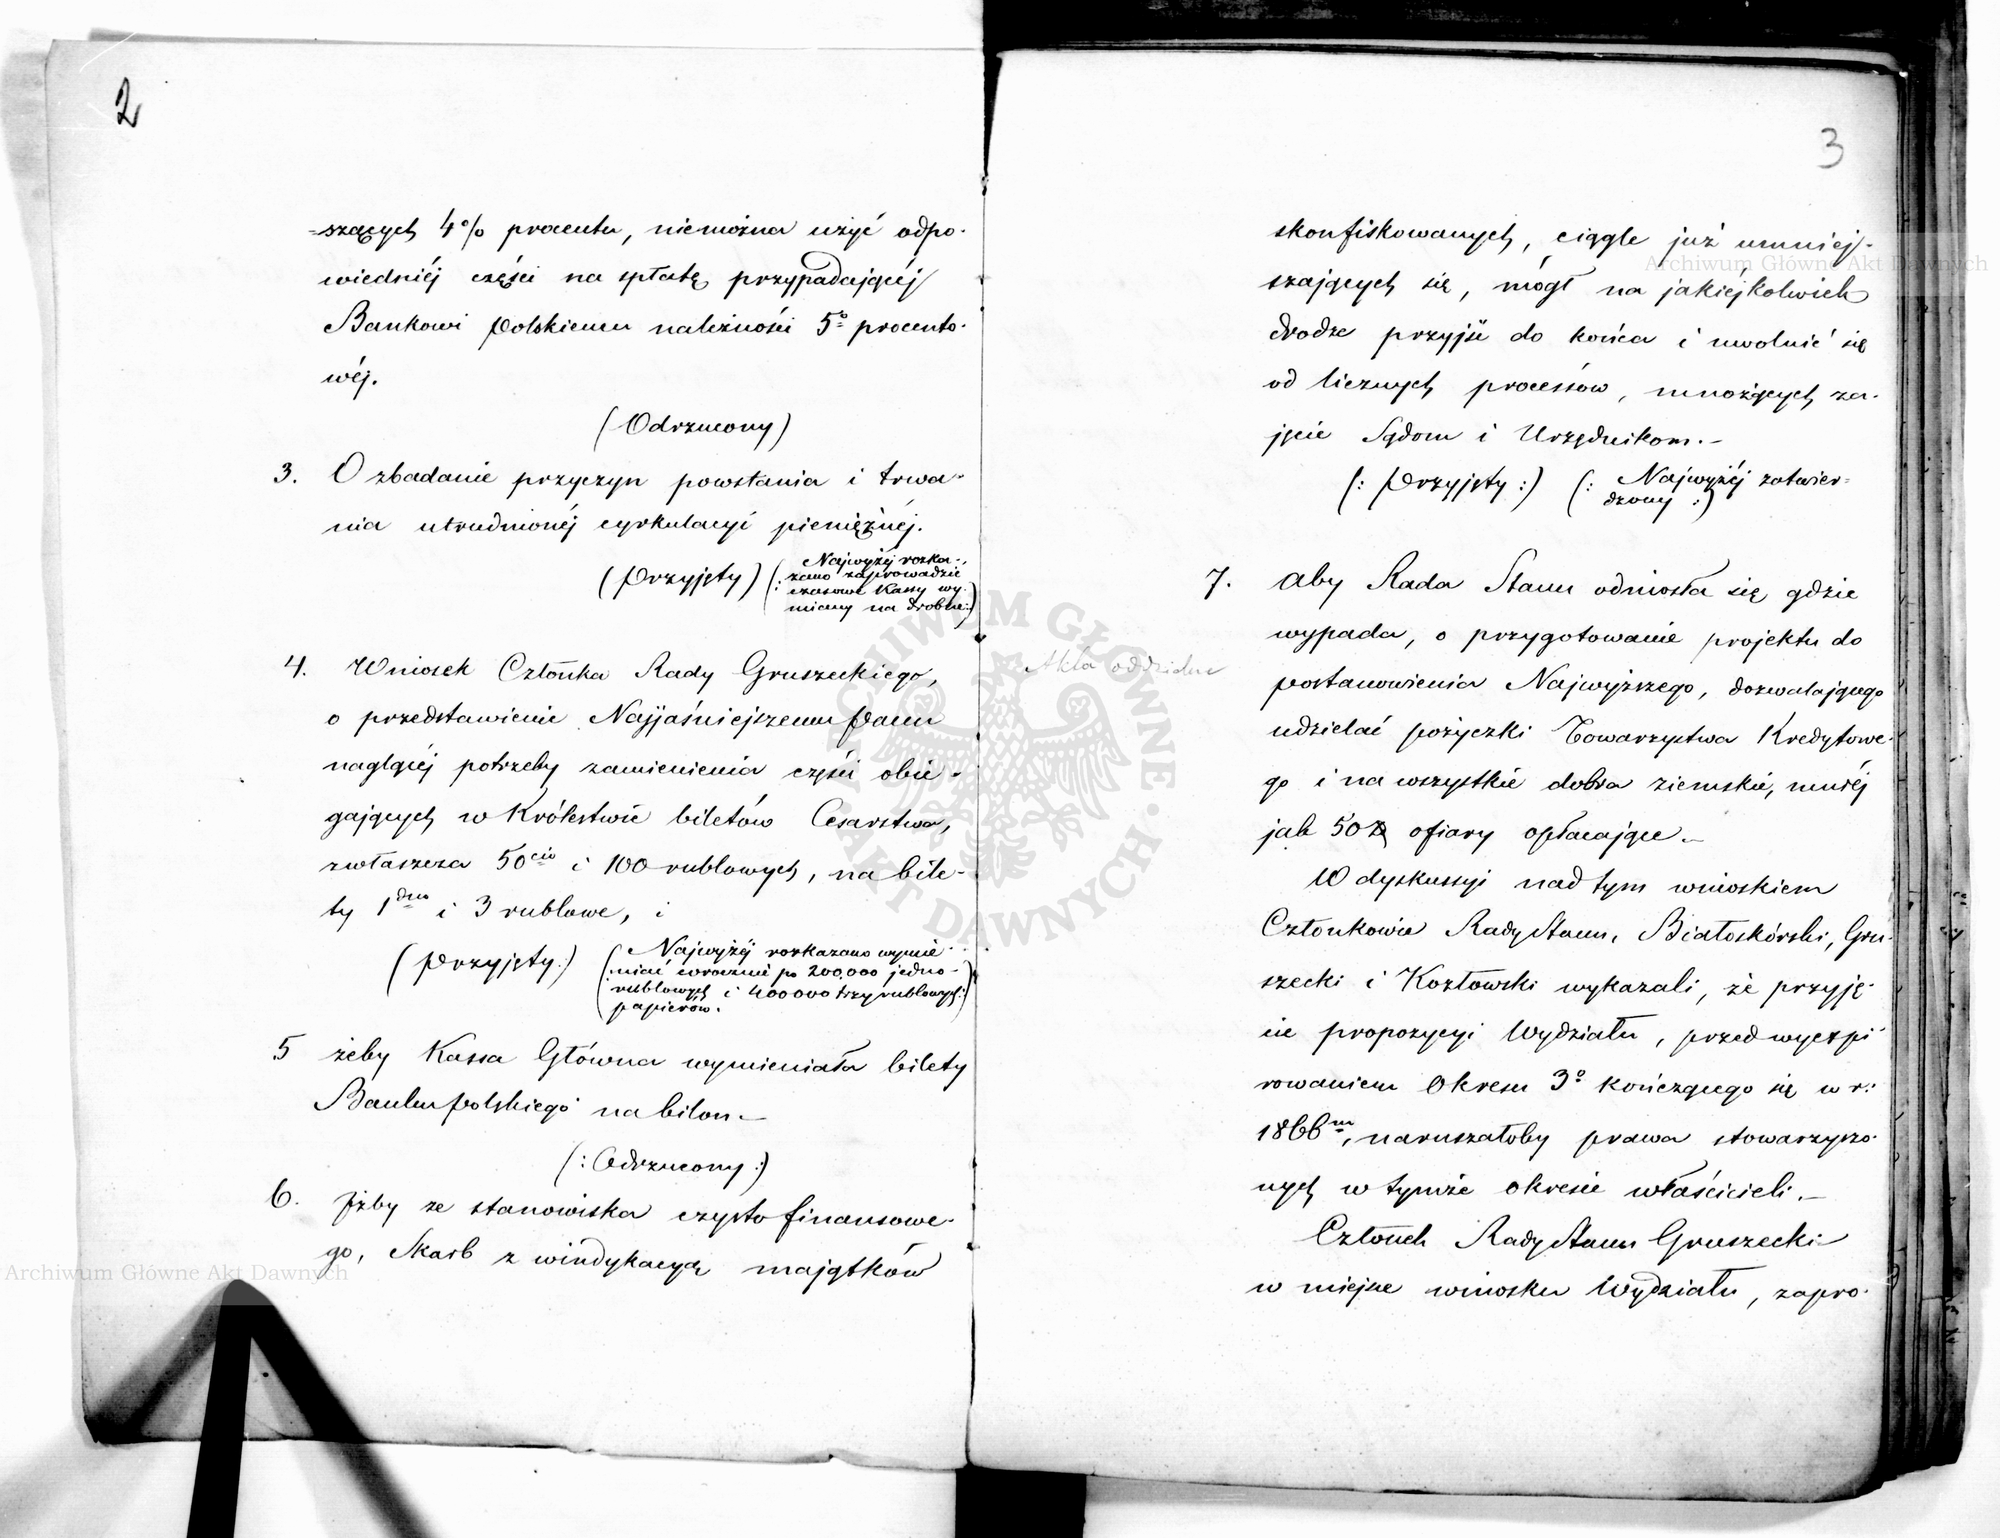 2
-szących 4% procentu, niemożna użyć odpo-
wiedniéj części na spłatę przypadającéj
Bankowi Polskiemu należności 5º procento-
wéj.
(Odrzucony)
3. O zbadanie przyczyn powstania i trwa-
nia utrudnionéj cyrkulacyi pieniężnéj.
(Przyjęty) (: Najwyżéj rozka-
zano zaprowadzić
czasowe Kassy wy-
miany na drobne:)
4. Wniosek Członka Rady Gruszeckiego,
o przedstawienie Najjaśniejszemu Panu
naglącéj potrzeby zamienienia części obie-
gających w Królestwie biletów Cesarstwa,
zwłaszcza 50cio i 100 rublowych, na bile-
ty 1dno i 3 rublowe, i
(Przyjęty:) (: Najwyżéj rozkazano wymie-
niać corocznie po 200,000 jedno-
rublowych i 400000 trzyrublowych:)
papierów.
5 żeby Kassa Główna wymieniała bilety
Banku Polskiego na bilon.—
(: Odrzucony :)
6. Iżby ze stanowiska czysto finansowe-
go, Skarb z windykacyą majątków
3
skonfiskowanych, ciągle już umniej-
szających się, mógł na jakiéjkolwiek
drodze przyjść do końca i uwolnić się
od licznych processów, mnożących za-
jęcie Sądom i Urzędnikom.—
(: Przyjęty :) (: Najwyżéj zatwier-
dzony :)
7. Aby Rada Stanu odniosła się gdzie
wypada, o przygotowanie projektu do
Akta oddziału
postanowienia Najwyższego, dozwalającego
udzielać pożyczki Towarzystwa Kredytowe-
go i na wszystkie dobra ziemskie, mniéj
jak 50 ofiary opłacające.—
W dyskussyi nad tym wnioskiem
Członkowie Rady Stanu, Białoskórski, Gru-
szecki i Kozłowski wykazali, że przyję-
cie propozycyi Wydziału, przed wyexpi-
rowaniem Okresu 3º kończącego się w r:
1866m, naruszałoby prawa stowarzyszo-
nych w tymże okresie właścicieli.—
Członek Rady Stanu Gruszecki
w miejsce wniosku Wydziału, zapro-
ARCHIWUM GŁÓWNE AKT DAWNYCH
Archiwum Główne Akt Dawnych
Archiwum Główne Akt Dawnych